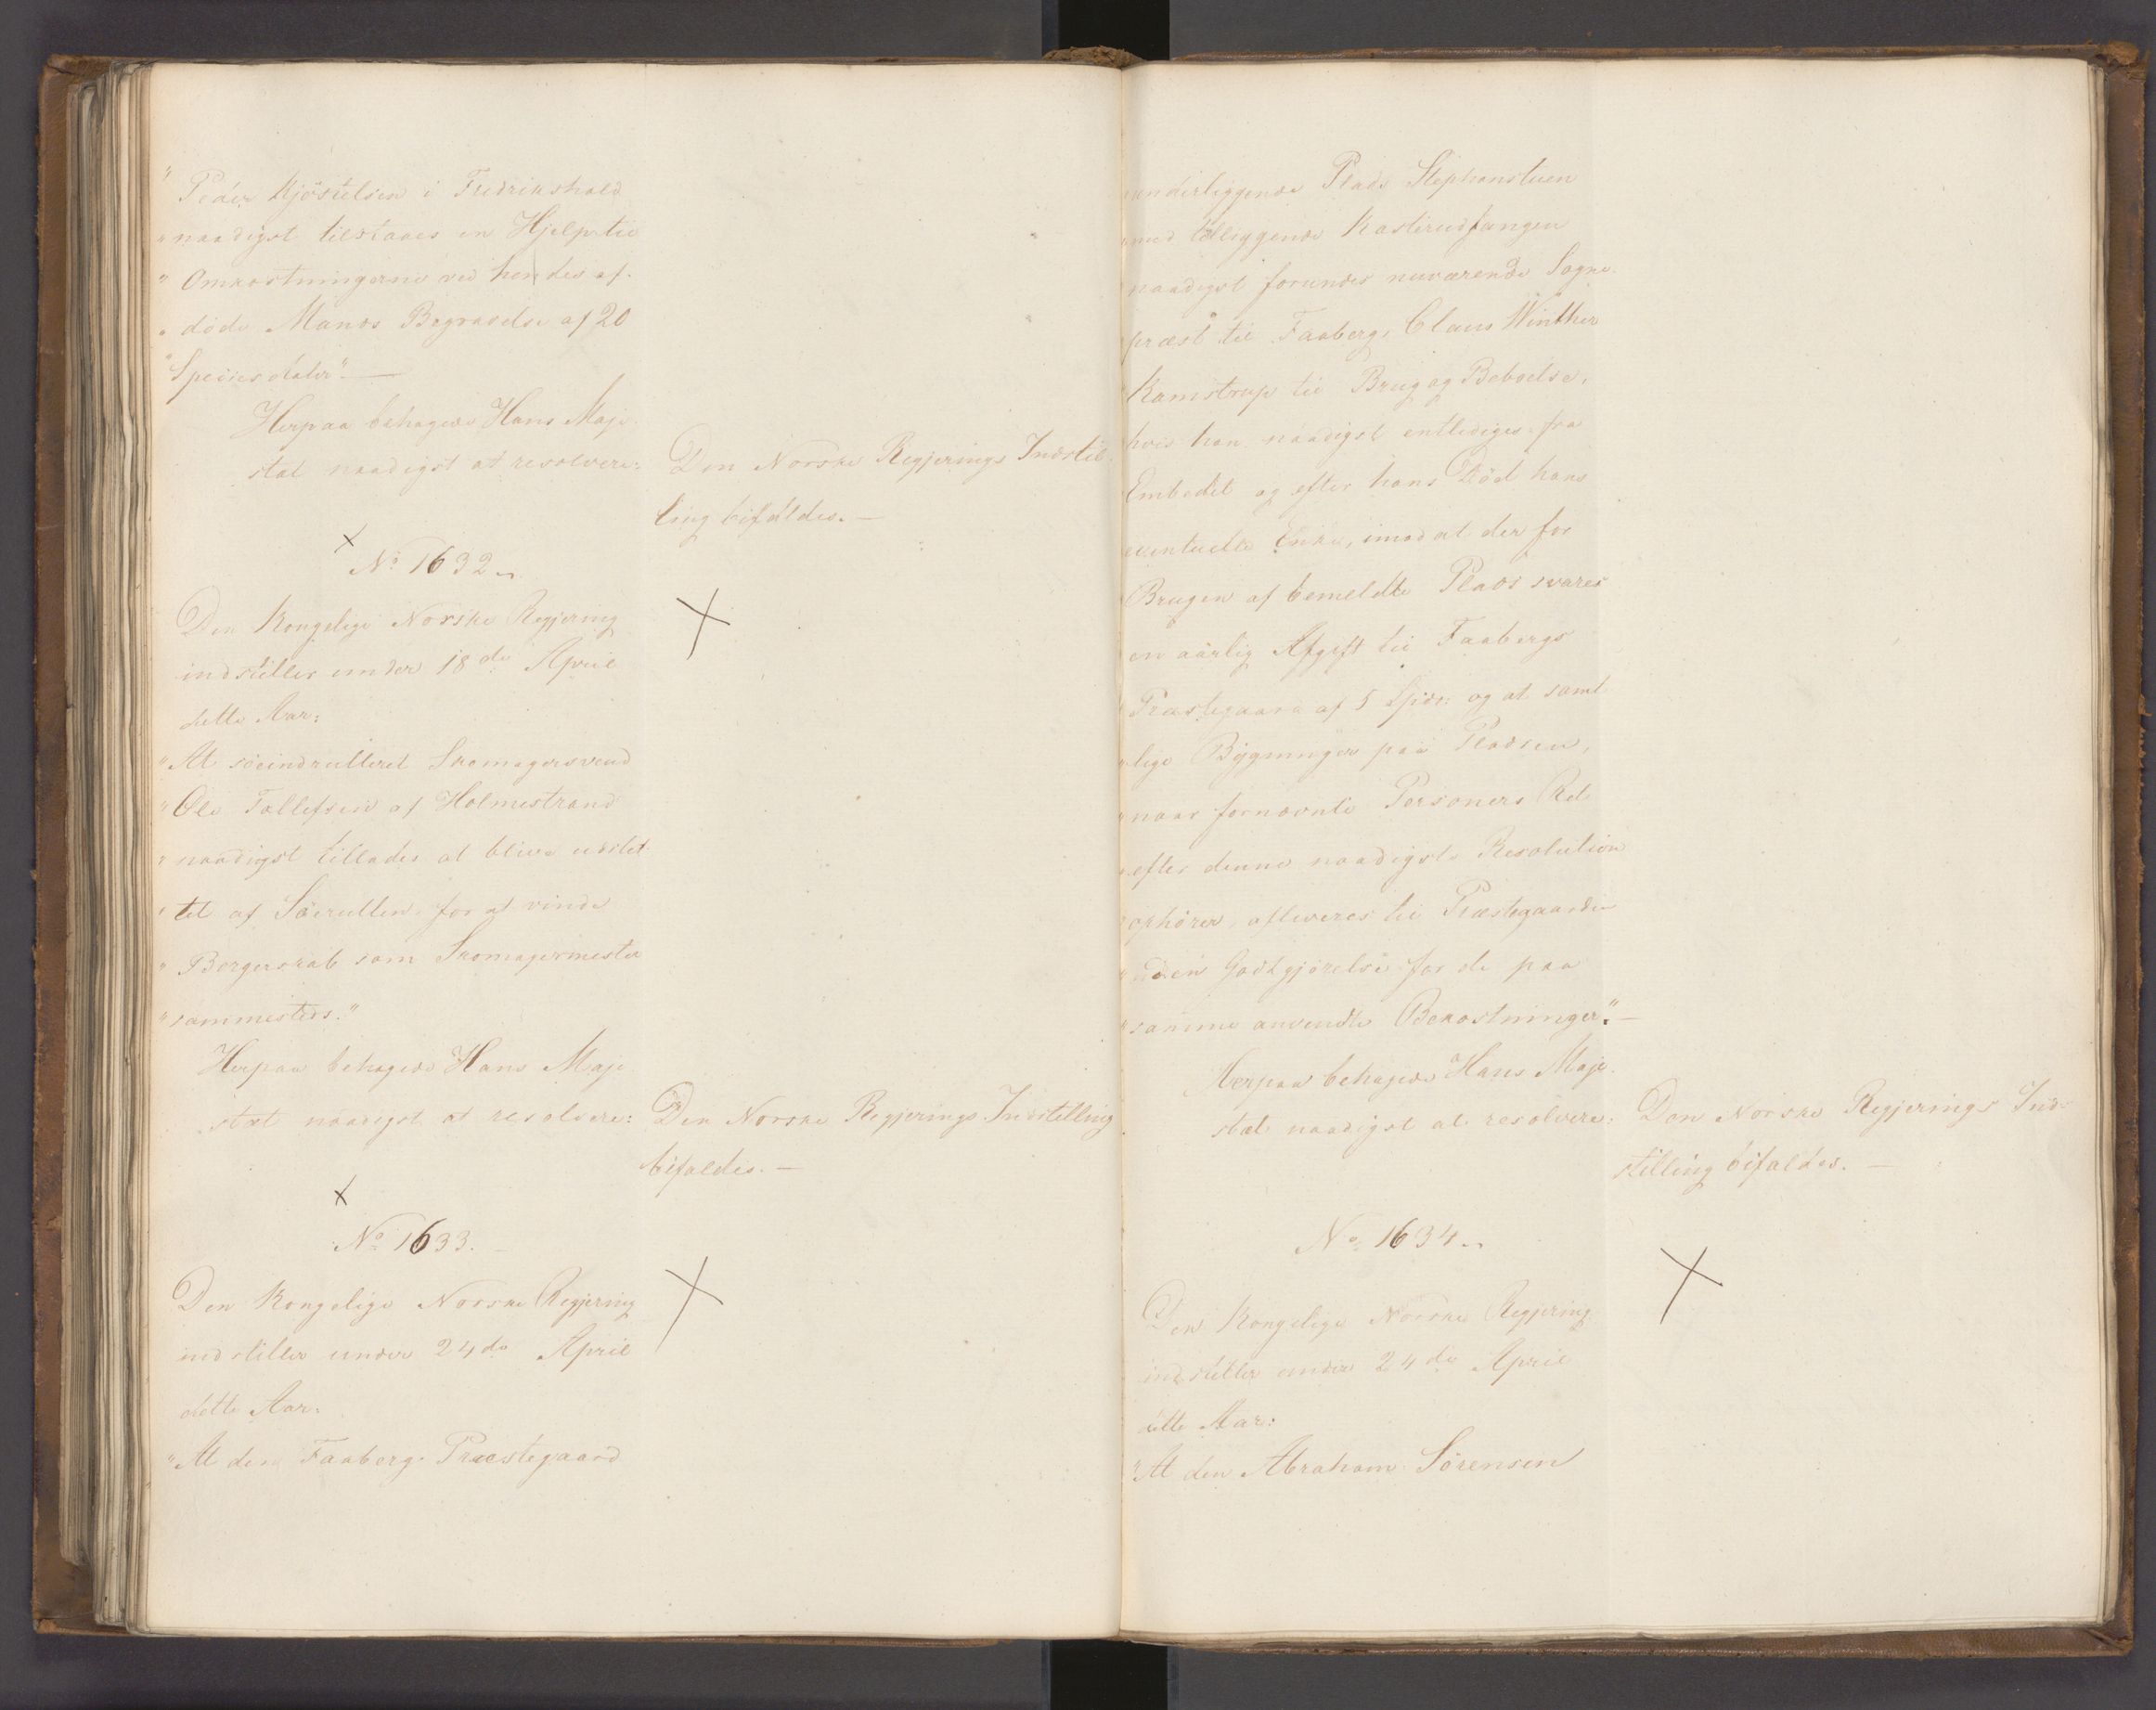 "Peder Kjöstelsen i Fredrikshald
"naadigst tilstaaes en Hjelp til
"Omkostningerne ved hendes af-
"döde Mands Begravelse af 20
"Speciesdaler". —
Herpaa behagede Hans Maje-
stæt naadigst at resolvere:
Den Norske Regjerings Indstil-
ling bifaldes. —
No 1632.
Den Kongelige Norske Regjering
indstiller under 18de April
dette Aar:
"At söeindrulleret Skomagersvend
"Ole Tollefsen af Holmestrand
"naadigst tillades at blive udslet-
"tet af Söerullen, for at vinde
"Borgerskab som Skomagermester
"sammesteds."
Herpaa behagede Hans Maje-
stæt naadigst at resolvere:
Den Norske Regjerings Indstilling
bifaldes. —
No 1633.
Den Kongelige Norske Regjering
indstiller under 24de April
dette Aar:
"At den Faabergs Præstegaard
"underliggende Plads Stephanstuen
"med tilliggende Kasterudfangen
"naadigst forundes nuværende Sogne-
"præst til Faaberg, Claus Winther
"Kamstrup til Brug og Beboelse,
"hvis han naadigst entlediges fra
"Embedet og efter hans Död hans
"eventuelle Enke, imod at der for
"Brugen af bemeldte Plads svares
"en aarlig Afgift til Faabergs
"Præstegaard af 5 Spd. og at samt-
"lige Bygninger paa Pladsen,
"naar fornævnte Personers Ret
"efter denne naadigste Resolution
"ophörer, afleveres til Præstegaarden
"uden Godtgjörelse for de paa
"samme anvendte Bekostninger". —
Herpaa behagede Hans Maje-
stæt naadigst at resolvere:
Den Norske Regjerings Ind-
stilling bifaldes. —
No 1634.
Den Kongelige Norske Regjering
indstiller under 24de April
dette Aar:
"At den Abraham Sörensen